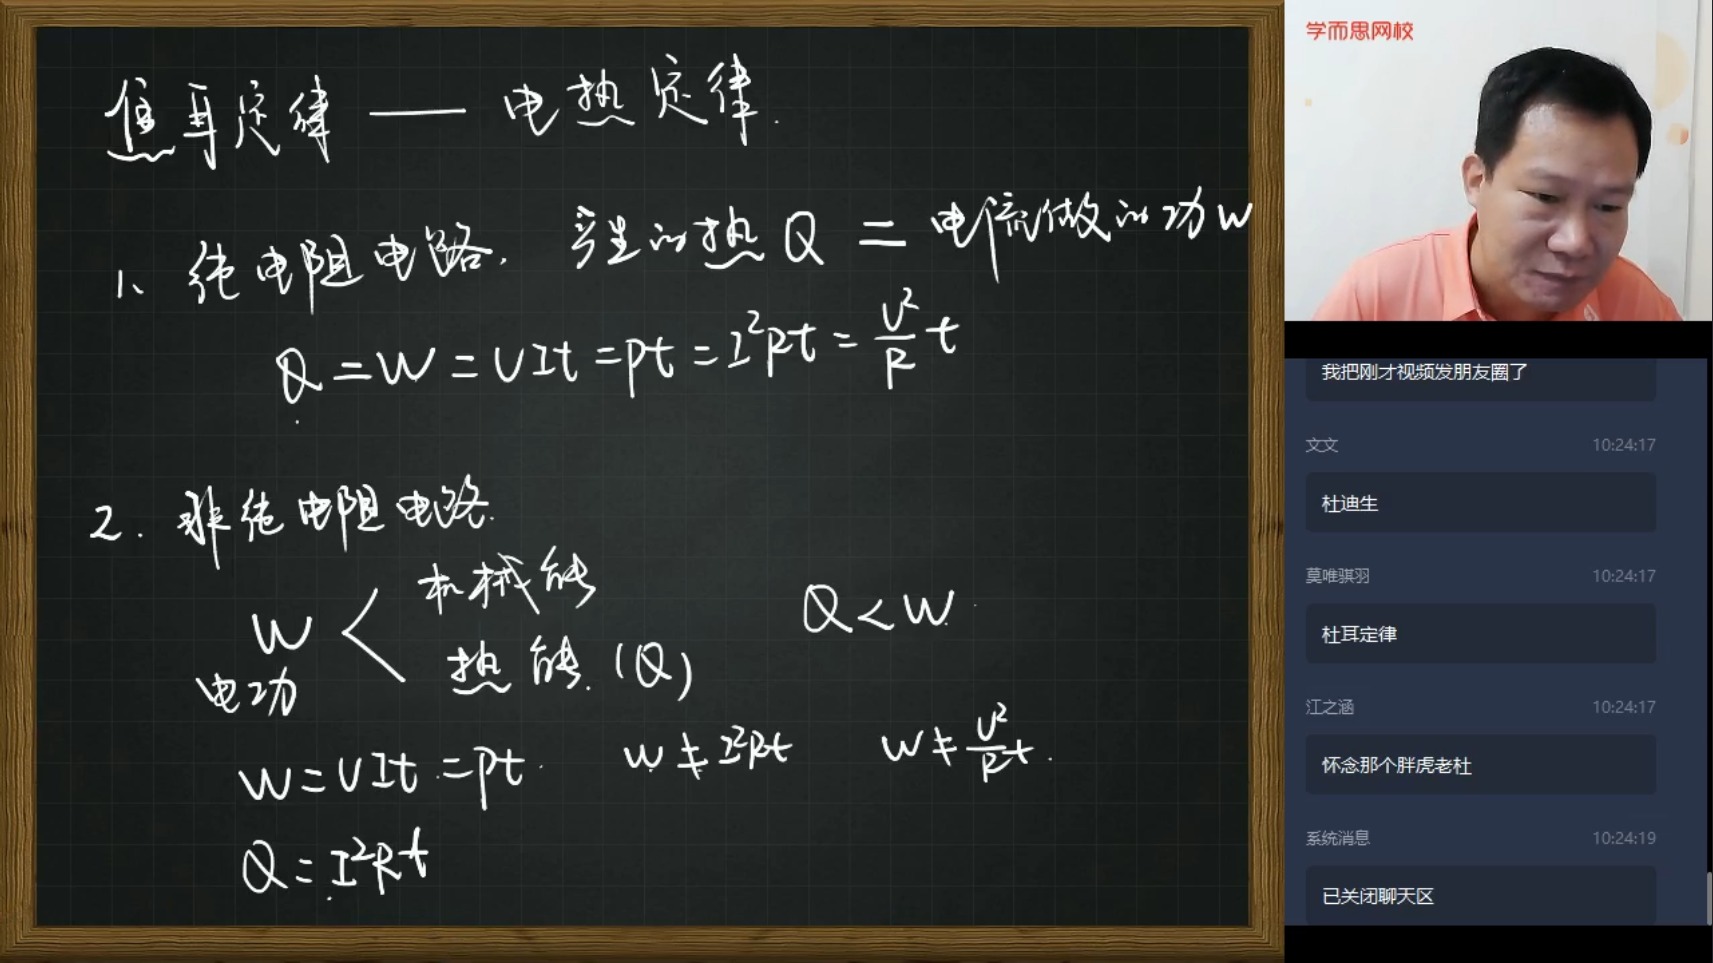 焦耳定律 —— 电热定律.
1、纯电阻电路. 产生的热Q = 电流做的功W
Q = W = UIt = Pt = I²Rt = U²/R t
2. 非纯电阻电路.
W < 机械能
热能.(Q)
电功
Q < W.
W = UIt = Pt. W ≠ I²Rt W ≠ U²/R t.
Q = I²Rt
学而思网校
我把刚才视频发朋友圈了
文文 10:24:17
杜迪生
莫唯骐羽 10:24:17
杜耳定律
江之涵 10:24:17
怀念那个胖虎老杜
系统消息 10:24:19
已关闭聊天区